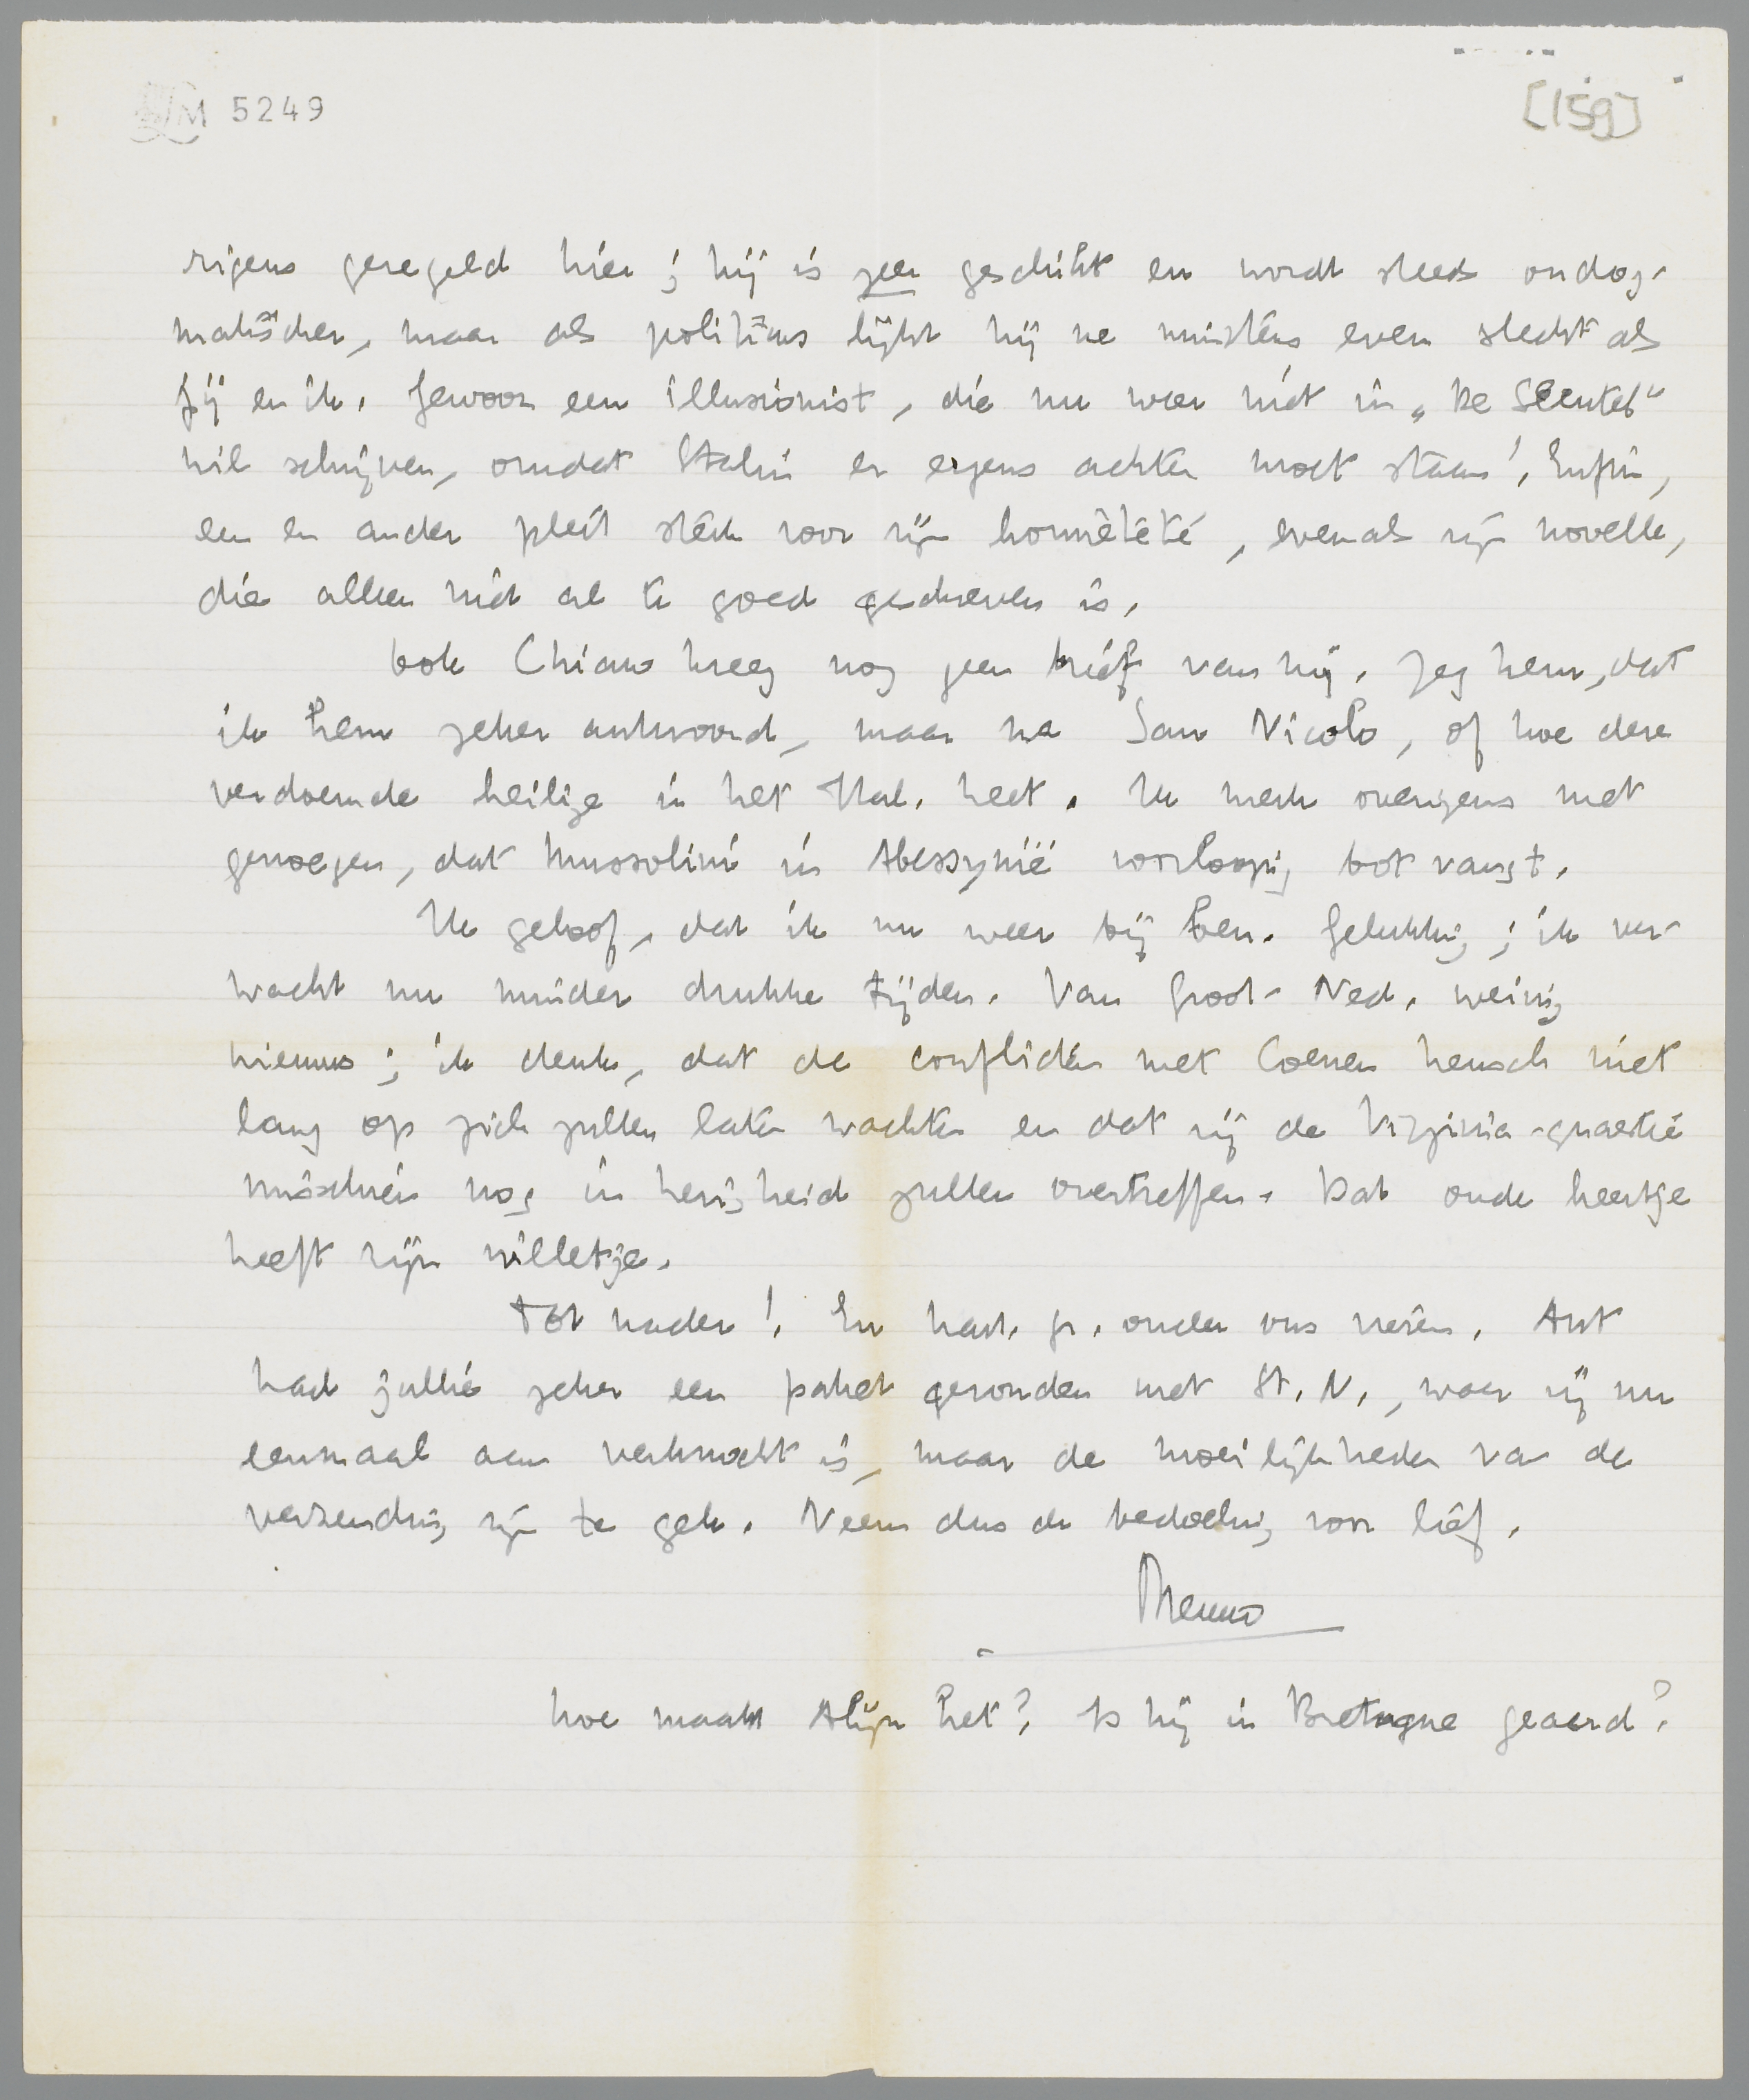 LM 5249
[159]
rigens geregeld hier; hij is zeer geschikt en wordt steeds ondog-
matischer, maar als politicus lijkt hij me minstens even slecht als
jij en ik. Gewoon een illusionist, die nu weer niet in „De Sleutel"
wil schrijven, omdat Stalin er ergens achter moet staan! Enfin,
een en ander pleit sterk voor zijn honnêteté, evenals zijn novelle,
die alleen niet al te goed geschreven is.
Ook Chiaro kreeg nog geen brief van mij. Zeg hem, dat
ik hem zeker antwoord, maar na San Nicolo, of hoe deze
verdoemde heilige in het Ital. heet. Ik merk overigens met
genoegen, dat Mussolini in Abessynië voorloopig bot vangt.
Ik geloof, dat ik nu weer bij ben. Gelukkig; ik ver-
wacht nu minder drukke tijden. Van Groot-Ned. weinig
nieuws; ik denk, dat de conflicten met Coenen heusch niet
lang op zich zullen laten wachten en dat zij de Virginia-quaestie
misschien nog in hevigheid zullen overtreffen. Dat oude heertje
heeft zijn willetje.
Tot nader! En hart. gr. onder ons vieren. Ant
had jullie zeker een pakket gezonden met St. N., waar zij nu
eenmaal aan verknocht is, maar de moeilijkheden van de
verzending zijn te gek. Neem dus de bedoeling voor lief.
Menno
Hoe maakt Alijn het? Is hij in Bretagne geaard?